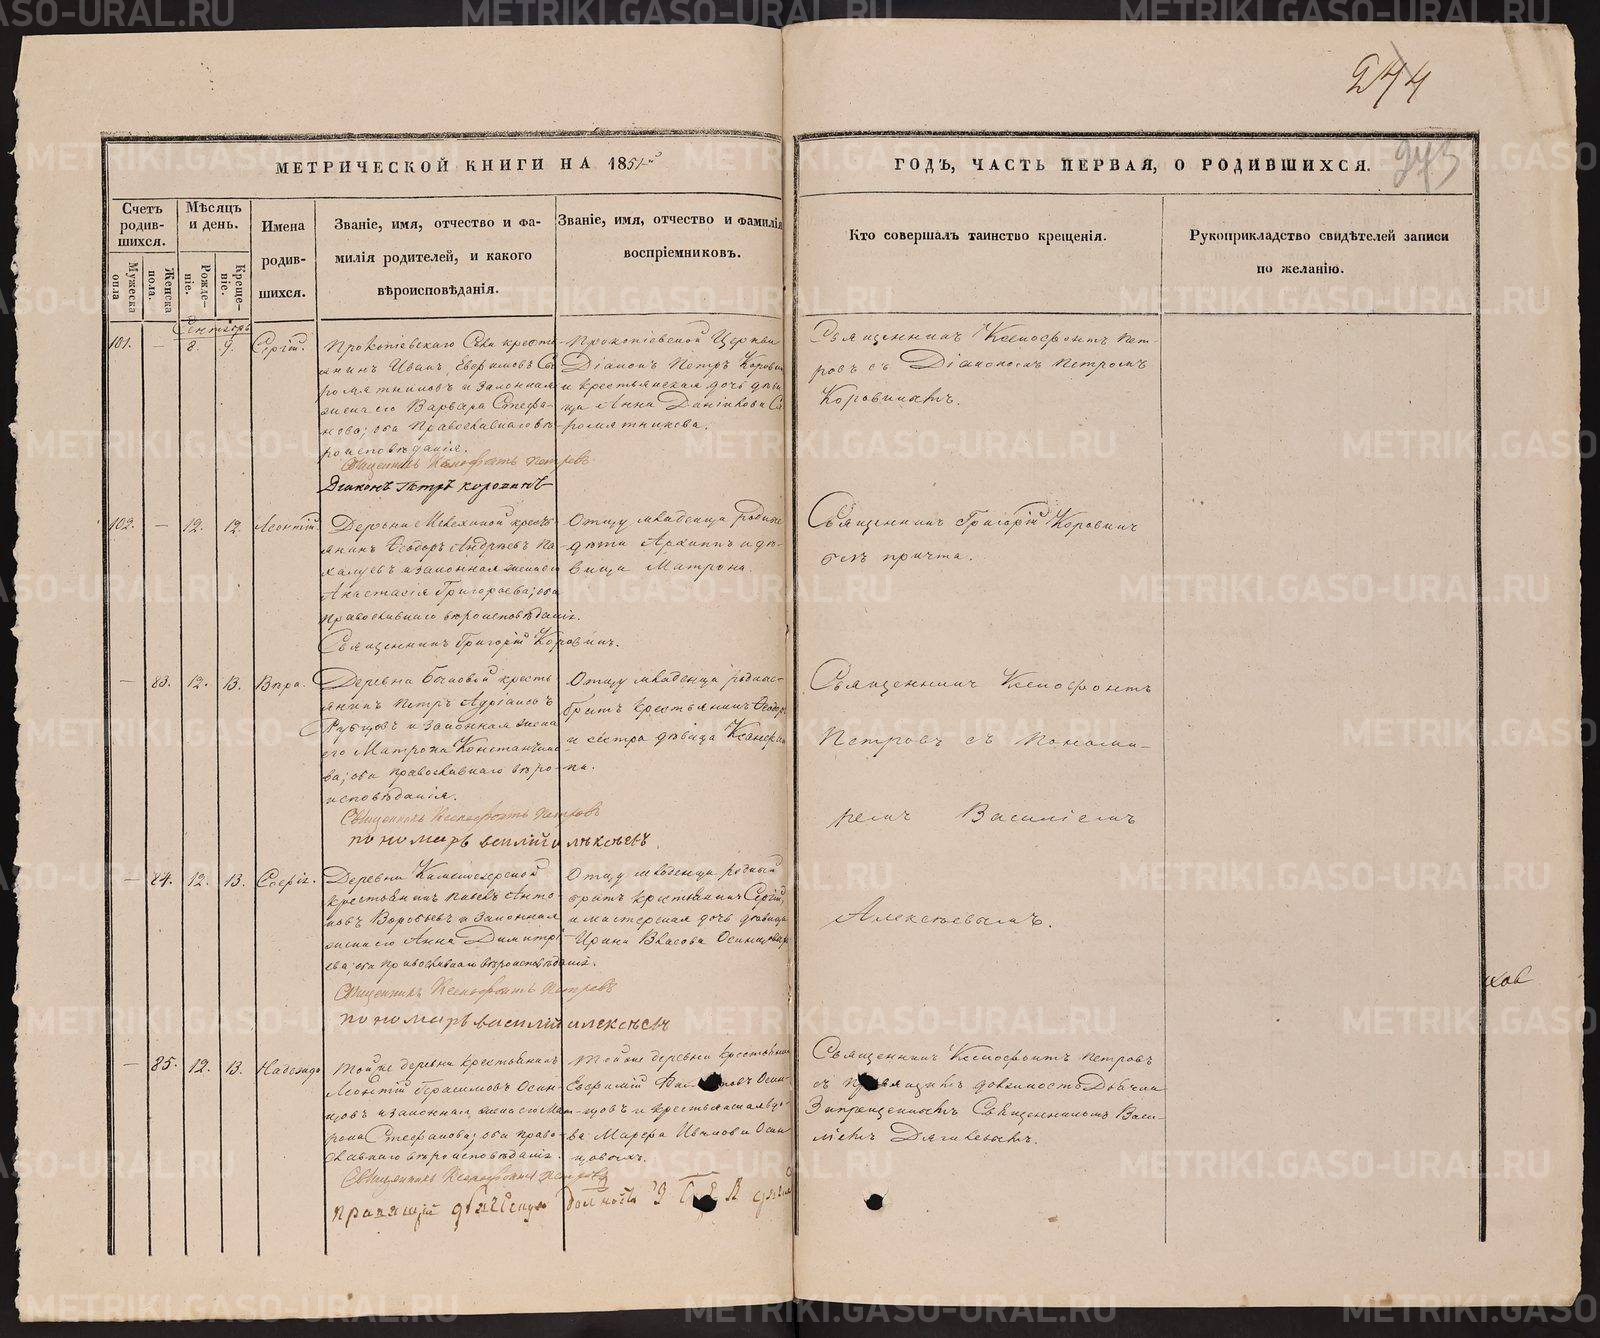 244
243
МЕТРИЧЕСКОЙ КНИГИ НА 1851й
ГОДЪ, ЧАСТЬ ПЕРВАЯ, О РОДИВШИХСЯ.
Счетъ родив-шихся.
Мужеска пола
Женска пола.
Мѣсяцъ и день.
Рожде-ніе.
Креще-ніе.
Имена
родив-
шихся.
Званіе, имя, отчество и фа-
милія родителей, и какого
вѣроисповѣданія.
Званіе, имя, отчество и фамилія
воспріемниковъ.
Кто совершалъ таинство крещенія.
Рукоприкладство свидѣтелей записи
по желанію.
Сентябрь
101. — 8. 9. Сергій.
Прокопіевскаго Села кресть-
янинъ Иванъ Евфимовъ Сы
ромятниковъ и Законная
жена его Варвара Стефа-
нова; оба Православнаго вѣ
роисповѣданія.
Священникъ Ксенофонтъ Петровъ
Діаконъ Петръ Коровинъ
Прокопіевской Церкви
Діаконъ Петръ Коровин
и крестьянская дочь дѣви
ца Анна Сы
ромятникова.
Священникъ Ксенофонтъ Пет-
ровъ съ Діакономъ Петромъ
Коровинымъ.
102. — 12. 12. Леонтій.
Деревни кресть
янинъ Ѳеодоръ Андреевъ Па
халуевъ и законная жена его
Анастасія Григорьева; оба
православнаго вѣроисповѣданія.
Священникъ Григорій Коровинъ.
Отцу младенца родные
дѣти Архиппъ и дѣ-
вица Матрона.
Священникъ Григорій Коровинъ
безъ причта.
— 83. 12. 13. Вѣра.
Деревни Бочковой кресть
янинъ Петръ Адріановъ
и законная жена
его Матрона Константино
ва; оба православнаго вѣро-
исповѣданія.
Священникъ Ксенофонтъ Петровъ
пономарь василій алексѣевъ.
Отцу младенца родные
братъ крестьянинъ Ѳеодоръ
и сестра дѣвица
Священникъ Ксенофонтъ
Петровъ съ понома-
ремъ Василіемъ
Алексѣевымъ.
— 84. 12. 13. Софія.
Деревни Каменноозерской
крестьянинъ Павелъ Анто
новъ Воробьевъ и Законная
жена его Анна Димитрі-
ева; оба православнаго вѣроисповѣданія.
Священникъ Ксенофонтъ Петровъ
пономарь василій алексѣевъ
Отцу младенца родный
братъ крестьянинъ Сергій,
и мастерская дочь дѣвица
Ирина Власова Осинцова
— 85. 12. 13. Надежда
Той же деревни крестьянинъ
Леонтій Герасимовъ Осин-
цовъ и законная жена его Мат
рона Стефанова; оба право-
славнаго вѣроисповѣданія.
Священникъ Ксенофонтъ Петровъ
Той же деревни крестьянин
Евфимій Осин-
цовъ и крестьянская вдо-
ва Марфа Иванова Осин
цовыхъ.
Священникъ Ксенофонтъ Петровъ
съ правящимъ должность Дьячка
Запрещеннымъ Священникомъ Васи-
ліемъ Дягилевымъ.
правящій дьяческую должность
ков
METRIKI.GASO-URAL.RU